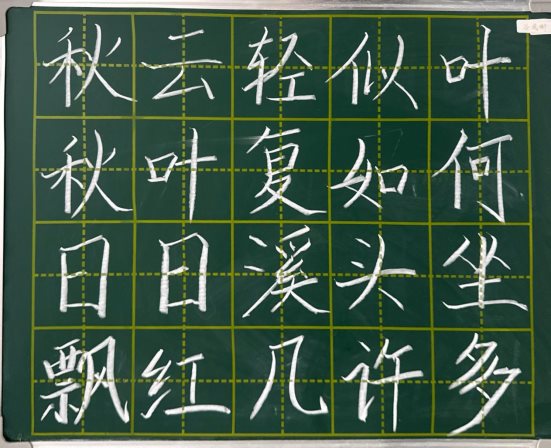 秋云轻似叶
秋叶复如何
日日溪头坐
飘红几许多